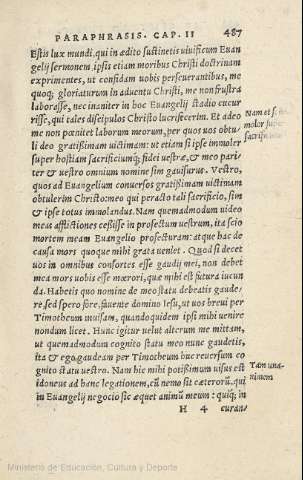 PARAPHRASIS. CAP. II 487
Estis lux mundi, qui in ædito sustinetis viuificum Euan
gelij sermonem, ipsis etiam moribus Christi doctrinam
exprimentes, ut confidam uobis perseuerantibus, me
quoq; gloriaturum in aduentu Christi, me non frustra
laborasse, nec inaniter in hoc Euangelij stadio cucur
risse, qui tales discipulos Christo lucrifecerim. Et adeo
me non pœnitet laborum meorum, per quos uos obtu
li deo gratißimam uictimam: ut etiam si ipse immoler
super hostiam sacrificiumq; fidei uestræ, & meo pari
ter & uestro omnium nomine sim gauisurus. Vestro,
quos ad Euangelium conuersos gratißimam uictimam
obtulerim Christo: meo qui peracto tali sacrificio, sim
& ipse totus immolandus. Nam quemadmodum uideo
meas afflictiones ceßisse in profectum uestrum, ita scio
mortem meam Euangelio profecturam: atque hac de
causa mors quoque mihi grata uenlet. Quod si decet
uos in omnibus confortes esse gaudij mei, non debet
mea mors uobis esse mœrori, quæ mihi est futura iucun
da. Habetis quo nomine de meo statu debeatis gaude/
re sed spero fore, fauente domino Iesu, ut uos breui per
Timotheum uuisam, quandoquidem ipsi mihi uenire
nondum licet. Hunc igitur uelut alterum me mittam,
ut quemadmodum cognito statu meo nunc gaudetis,
ita & ego gaudeam per Timotheum huc reuersum co
gnito statu uestro. Nam hic mihi potißimum uisus est
idoneus ad hanc legationem, cũ nemo sit cæterorũ, qui
in Euangelij negocio sic æquet animũ meum: quiq; in
H 4 curan/
Nam et si im
molor super
sacrificium
Tam una-
nimem
Ministerio de Educación, Cultura y Deporte